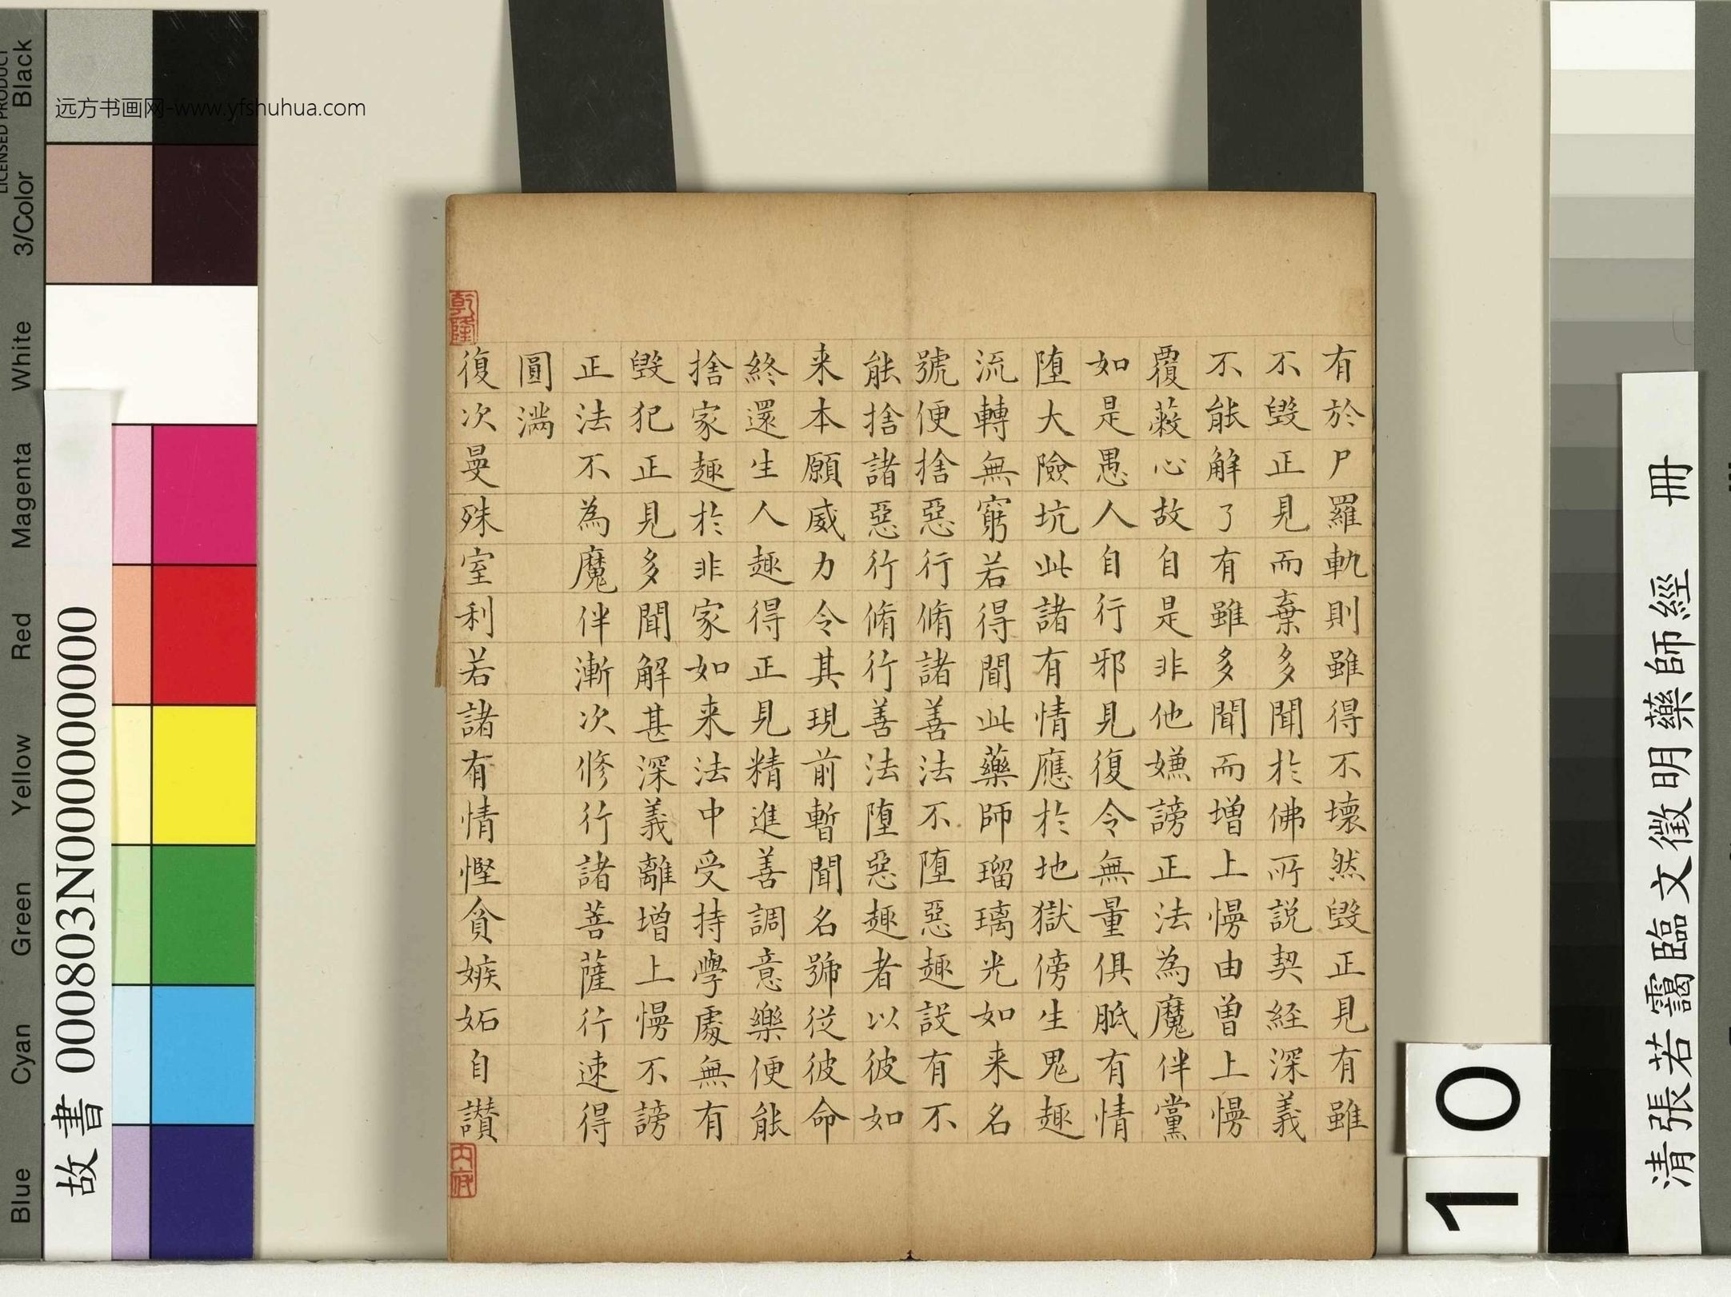 远方书画网-www.yfshuhua.com
LICENSED PRODUCT
Black
3/Color
White
Magenta
Red
Yellow
Green
Cyan
Blue
故書 000803N000000000
清張若靄臨文徵明藥師經 冊
10
乾隆
有於尸羅軌則雖得不壞然毀正見有雖
不毀正見而棄多聞於佛所說契経深義
不能解了有雖多聞而增上慢由曾上慢
覆蔽心故自是非他嫌謗正法為魔伴黨
如是愚人自行邪見復令無量俱胝有情
堕大險坑此諸有情應於地獄傍生鬼趣
流轉無窮若得聞此藥師瑠璃光如来名
號便捨惡行脩諸善法不堕惡趣設有不
能捨諸惡行脩行善法堕惡趣者以彼如
来本願威力令其現前暫聞名號從彼命
終還生人趣得正見精進善調意樂便能
捨家趣於非家如来法中受持學處無有
毀犯正見多聞解甚深義離增上慢不謗
正法不為魔伴漸次修行諸菩薩行速得
圓滿
復次曼殊室利若諸有情慳貪嫉妬自讃
内府